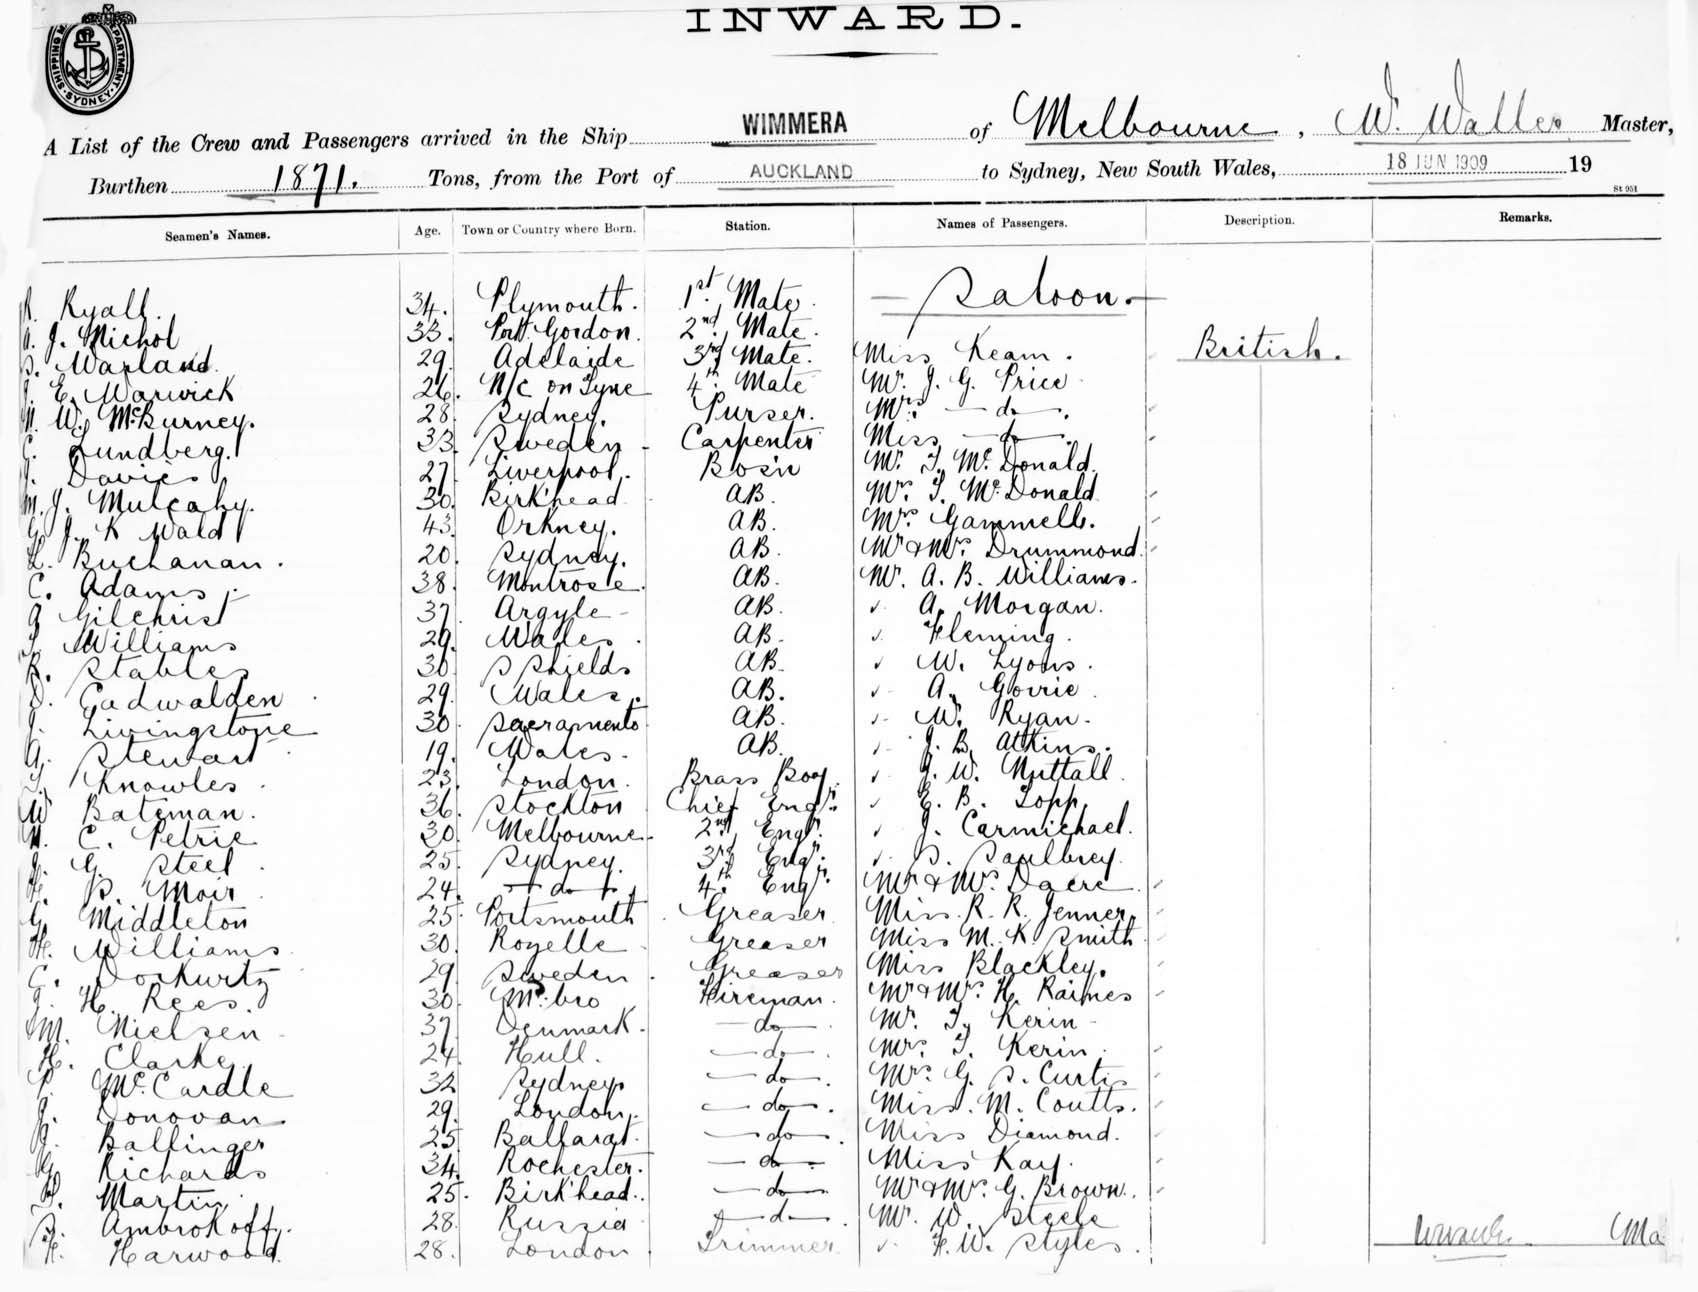 INWARD.
SHIPPING M DEPARTMENT SYDNEY
A List of the Crew and Passengers arrived in the Ship WIMMERA of Melbourne, W. Waller Master,
Burthen 1871. Tons, from the Port of AUCKLAND to Sydney, New South Wales, 18 JUN 1909 19
St 951
Seamen's Names. Age. Town or Country where Born. Station. Names of Passengers. Description. Remarks.
R. Ryall. 34. Plymouth. 1st. Mate. — Saloon. —
A. J. Nichol 33. Port Gordon. 2nd. Mate.
S. Warland. 29. Adelaide 3rd. Mate. Miss Keam. British.
J. E. Warwick 26. N/c on Tyne 4th. Mate Mr. J. G. Price
N. W. McBurney. 28. Sydney. Purser. Mrs. — do —.
C. Lundberg. 33. Sweden - Carpenter Miss — do —.
J. Davies 27. Liverpool. Bos'n Mr. T. McDonald.
M. J. Mulcahy. 30. Birk'head AB. Mrs. T. McDonald.
G. J. K Wald 43. Orkney. AB. Mrs. Gammell.
L. Buchanan. 20. Sydney. AB. Mr & Mrs. Drummond.
C. Adams. 38. Montrose. AB. Mr. A. B. Williams.
A Gilchrist 37. Argyle - AB. " A. Morgan.
T. Williams 29. Wales. AB. " Fleming.
R. Stables 30. S Shields AB. " W. Lyons.
D. Cadwalden 29. Wales. AB. " A. Gorrie.
J. Livingstone 30. Sacramento AB. " W. Ryan.
A. Stewart 19. Wales. AB. " J. B. Atkins.
T. Knowles. 23. London. Brass Boy. " J. W. Nuttall.
W Bateman. 36. Stockton Chief Engr. " E. B. Topp.
N. C. Petrie 30. Melbourne 2nd. Engr. " J. Carmichael.
J. G. Steel. 25. Sydney. 3rd. Engr. " S. Saulbrey.
H. S. Moir 24. — do —. 4th. Engr. Mr & Mrs. Dacre.
G. Middleton 25. Portsmouth. Greaser. Miss. R. R. Jenner.
H. Williams. 30. Rozelle Greaser Miss M. K. Smith
C. Dorkurtz 29. Sweden. Greaser Miss Blackley.
J. H. Rees. 30. M'bro Fireman. Mr & Mrs. H. Raines
M. Nielsen 37. Denmark. — do —. Mr. T. Kerin -
H. Clarke. 24. Hull. — do —. Mrs. T. Kerin.
P. McCardle 32 Sydney. — do —. Mrs. G. S. Curtis
J. Donovan 29. London. — do —. Miss. M. Coutts.
J. Ballinger 25 Ballarat. — do —. Miss Diamond.
G. Richards 34. Rochester. — do —. Miss Kay.
D. Martin. 25. Birk'head. — do —. Mr & Mrs. G. Brown.
S. Ambrokoff. 28. Russia — do —. Mr. W. Steele
H. Harwood. 28. London Trimmer. " F. W. Styles. Ma